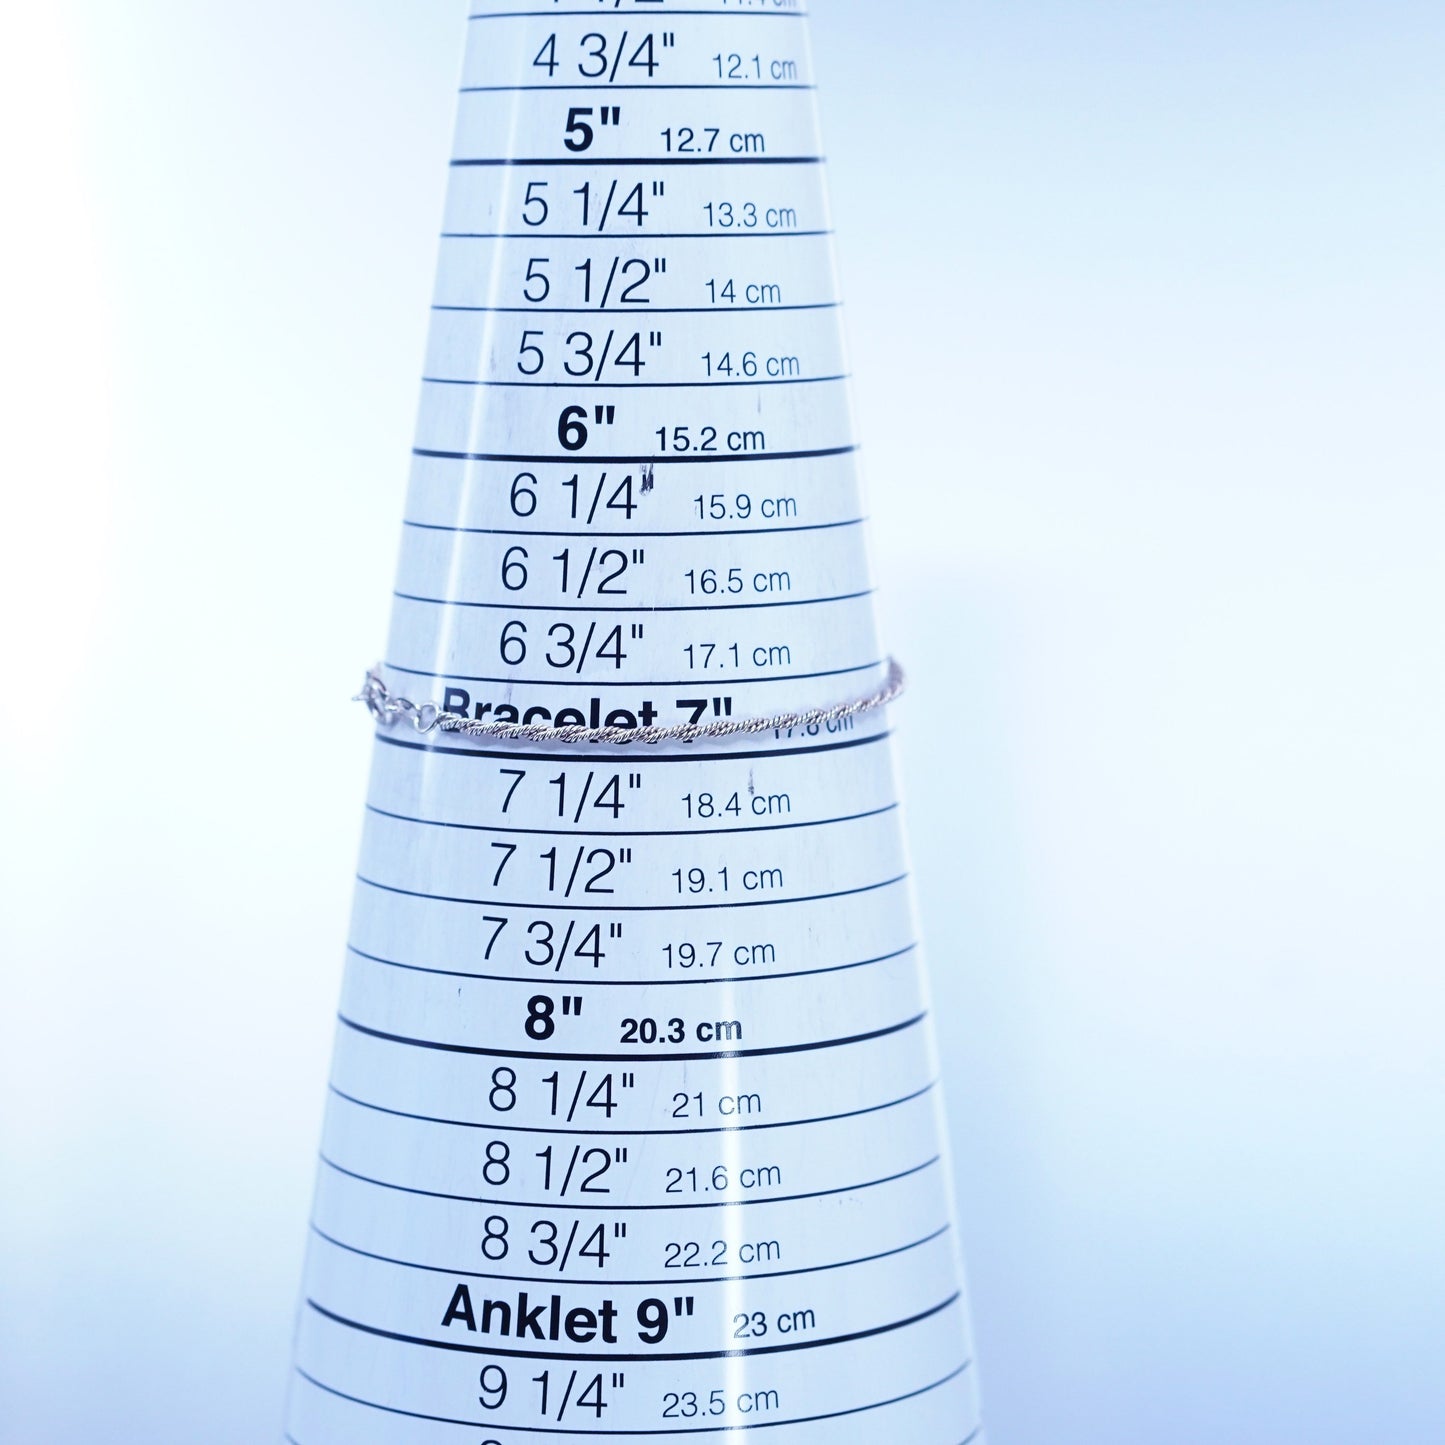 4 3/4" 12.1 cm
5" 12.7 cm
5 1/4" 13.3 cm
5 1/2" 14 cm
5 3/4" 14.6 cm
6" 15.2 cm
6 1/4" 15.9 cm
6 1/2" 16.5 cm
6 3/4" 17.1 cm
Bracelet 7" 17.8 cm
7 1/4" 18.4 cm
7 1/2" 19.1 cm
7 3/4" 19.7 cm
8" 20.3 cm
8 1/4" 21 cm
8 1/2" 21.6 cm
8 3/4" 22.2 cm
Anklet 9" 23 cm
9 1/4" 23.5 cm